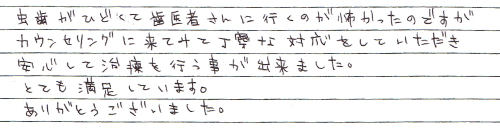 虫歯がひどくて歯医者さんに行くのが怖かったのですが
カウンセリングに来てみて丁寧な対応をしていただき
安心して治療を行う事が出来ました。
とても満足しています。
ありがとうございました。